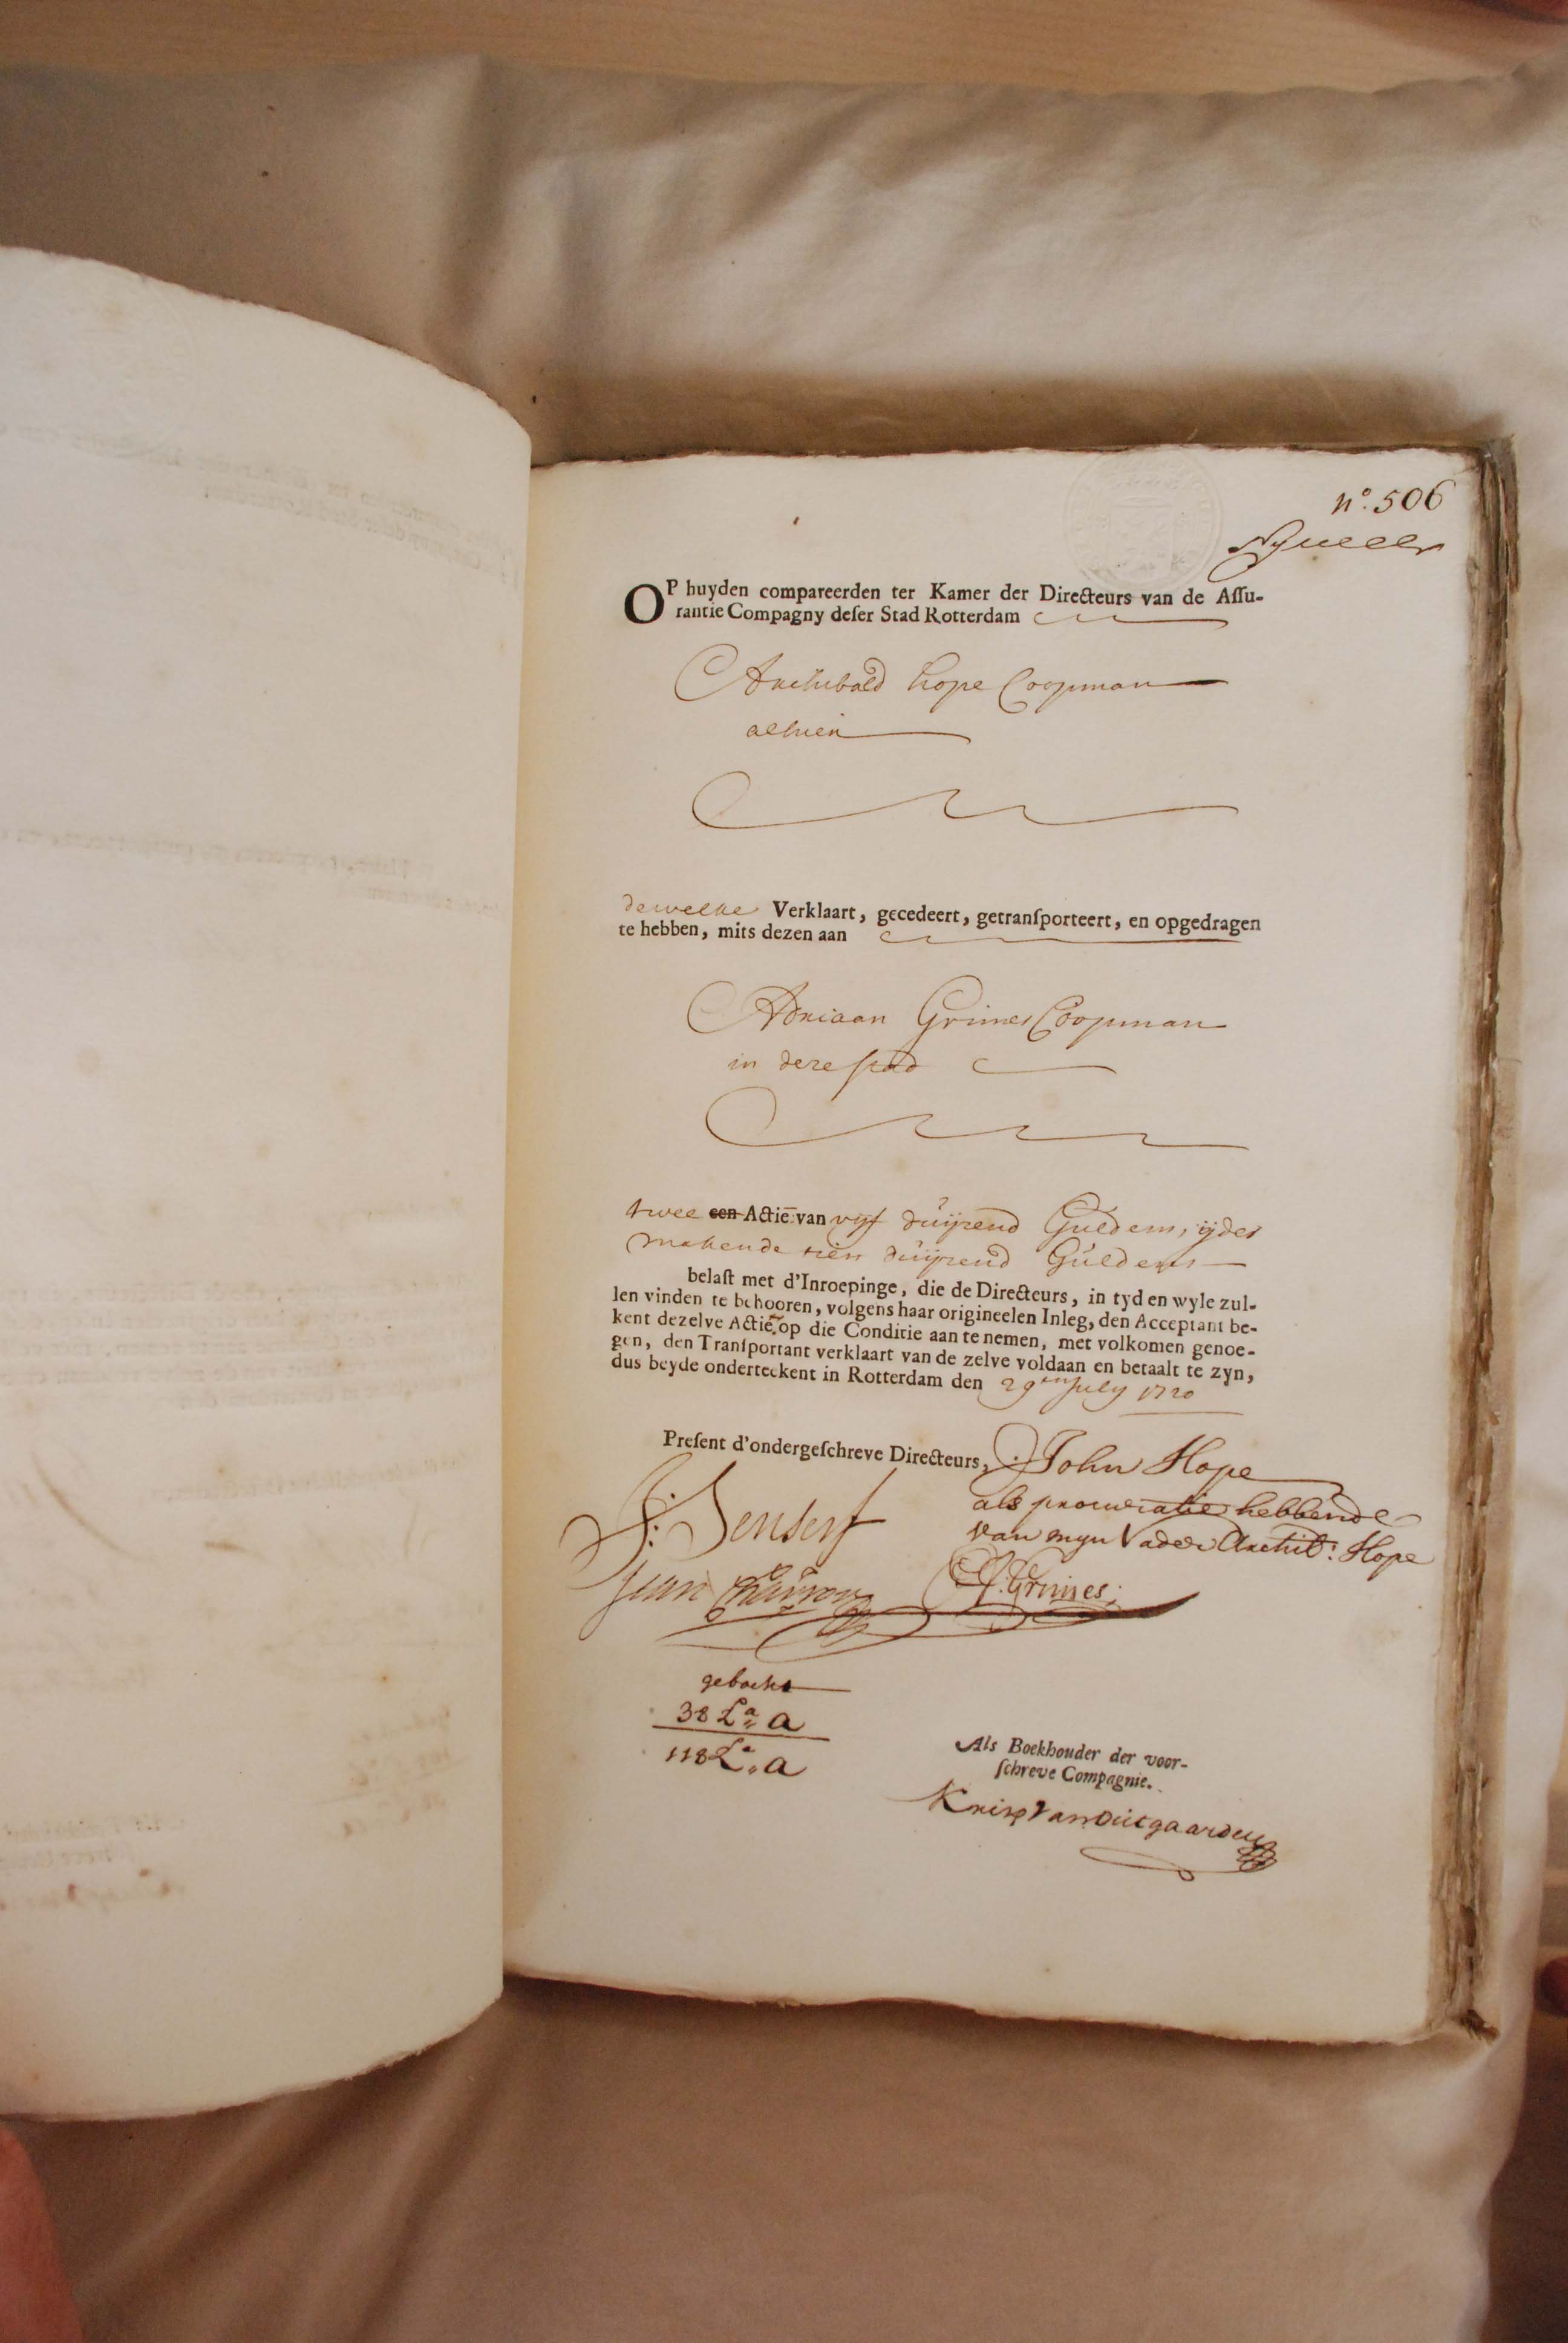 nº. 506
OP huyden compareerden ter Kamer der Directeurs van de Assu-
rantie Compagny deser Stad Rotterdam
Archibald hope Coopman
alhier
dewelke Verklaart, gecedeert, getransporteert, en opgedragen
te hebben, mits dezen aan
Adriaan Grimes Coopman
in dese stad
twee een Actie van vijf duijzend Guldens, ijder
makende tien duijzend Guldens
belast met d'Inroepinge, die de Directeurs, in tyd en wyle zul-
len vinden te behooren, volgens haar origineelen Inleg, den Acceptant be-
kent dezelve Actie op die Conditie aan te nemen, met volkomen genoe-
gen, den Transportant verklaart van de zelve voldaan en betaalt te zyn,
dus beyde onderteekent in Rotterdam den 29en July 1720
Present d'ondergeschreve Directeurs, John Hope
als procuratie hebbende
van myn Vader Archib: Hope
J: Senserf
Jean
A: Grimes
geboekt
38 La a
118 La a
Als Boekhouder der voor-
schreve Compagnie.
van Uitgaarden